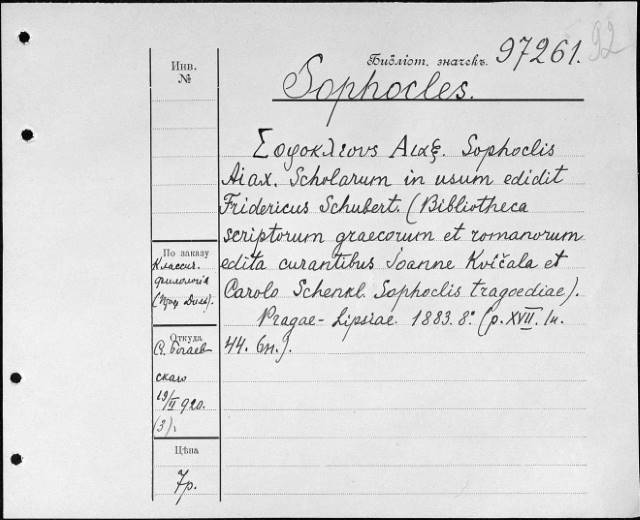 92
Библіот. значекъ. 97261.
Sophocles.
Инв.
№
Σοφοκλέους Αιαξ. Sophoclis
Aiax. Scholarum in usum edidit
Fridericus Schubert. (Bibliotheca
scriptorum graecorum et romanorum
edita curantibus Ioanne Kvíčala et
Carolo Schenkl. Sophoclis tragoediae).
Pragae-Lipsiae 1883. 8º. (p. XVII. Iн.
44. 6н.).
По заказу
Классич.
филологія
Откуда
скаго
19/II 920.
(3).
Цѣна
7р.